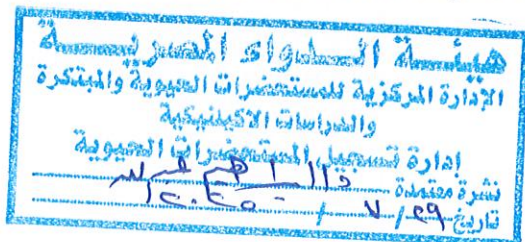 هيئة الدواء المصرية
الإدارة المركزية للمستحضرات الحيوية والمبتكرة
والدراسات الاكلينيكية
إدارة تسجيل المستحضرات الحيوية
نشرة معتمدة
تاريخ ٢٩ / ٧ /